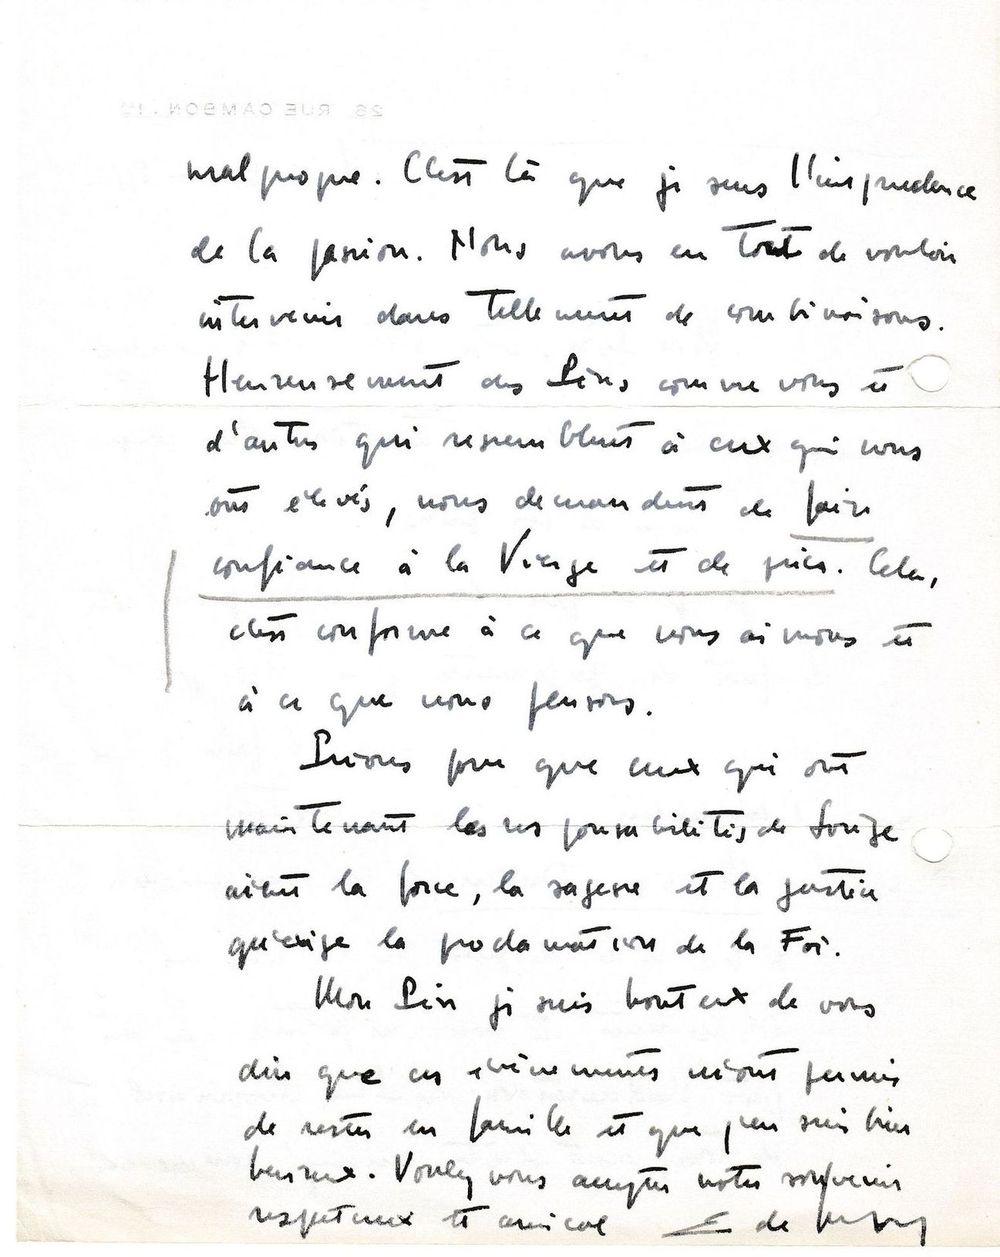 malpropre. C'est là que je sens l'imprudence
de la passion. Nous avons eu tort de vouloir
intervenir dans tellement de combinaisons.
Heureusement des Pères comme vous et
d'autres qui ressemblent à ceux qui nous
ont élevés, nous demandent de faire
confiance à la Vierge et de prier. Cela,
c'est conforme à ce que nous aimons et
à ce que nous pensons.
Prions pour que ceux qui ont
maintenant les responsabilités de
aient la force, la sagesse et la justice
qu'exige la proclamation de la Foi.
Mon Père je suis honteux de vous
dire que ces évènements m'ont permis
de rester en famille et que j'en suis bien
heureux. Voulez vous accepter notre souvenir
respectueux et amical E de